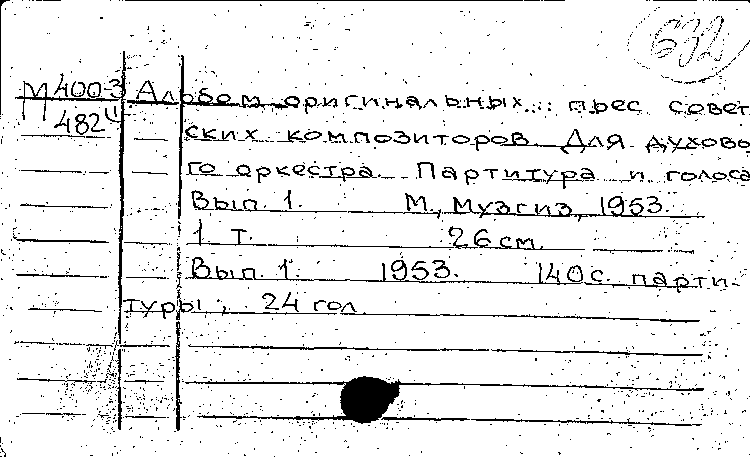 632
М 400-3 Альбом оригинальных пьес совет
482 ских композиторов. Для духово
го оркестра. Партитура и голоса
Вып. 1. М., Музгиз, 1953.
1 т. 26 см.
Вып. 1. 1953. 140 с. парти-
туры; 24 гол.